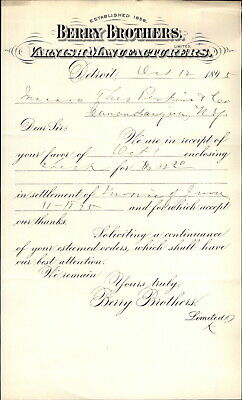 ESTABLISHED 1858.
BERRY BROTHERS,
LIMITED
VARNISH MANUFACTURERS.
Detroit, Oct 12 1895
Messrs Thos & Co
Canandaigua, N.Y.
Dear Sir:
We are in receipt
of your favor of Oct enclosing
check for $
in settlement of Invoice of June
11-1895 and for which accept
our thanks.
Soliciting a continuance
of your esteemed orders, which shall have
our best attention.
We remain
Yours truly,
Berry Brothers,
Limited